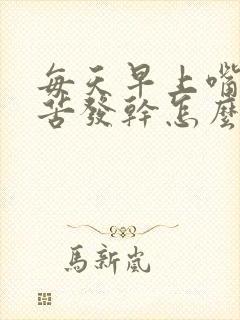 每天早上嘴
苦發幹怎麼
馬新嵐